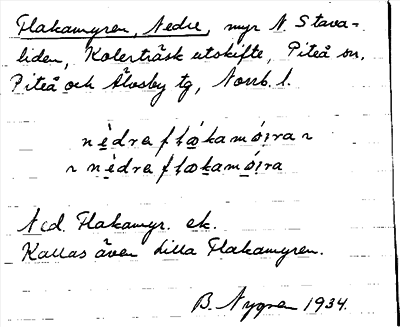 Flakamyren, Nedre, myr N. Stava-
liden, Kolerträsk utskifte, Piteå sn,
Piteå och Älvsby tg, Norrb. l.
nèdra flákamóira ~
~ nèdra flákamóira
Acd. Flakamyr. ek.
Kallas även Lilla Flakamyren.
B. Nygren 1934.